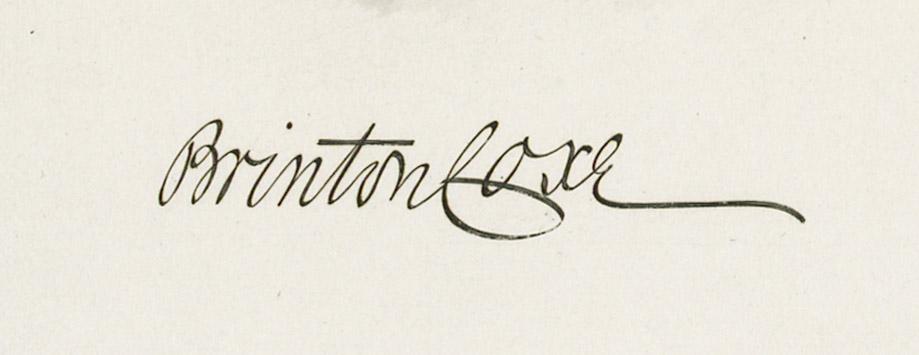 Brinton Coxe